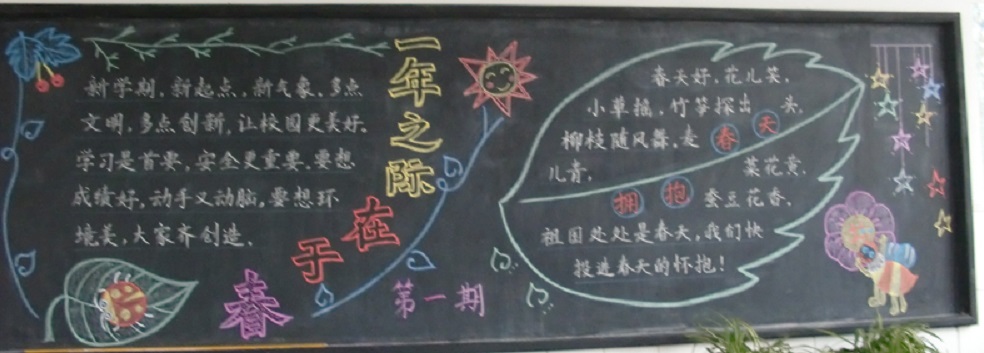 新学期,新起点,新气象,多点
文明,多点创新,让校园更美好.
学习是首要,安全更重要.要想
成绩好,动手又动脑,要想环
境美,大家齐创造.
一年之际
在于春
第一期
春天好,花儿笑.
小草摇,竹笋探出头.
柳枝随风舞,麦
春天
儿青,菜花黄.
拥抱
蚕豆花香.
祖国处处是春天,我们快
投进春天的怀抱!